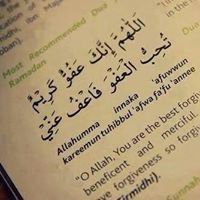 Most Recommended Dua
Ramadan
اَللّٰهُمَّ إِنَّكَ عَفُوٌّ كَرِيْمٌ
تُحِبُّ الْعَفْوَ فَاعْفُ عَنِّيْ
Allahumma innaka 'afuwwun
kareemun tuhibbul 'afwa fa'fu 'annee
"O Allah, You are the best forgi
beneficent and merciful.
ve forgiveness so forgiv
rmidhi).